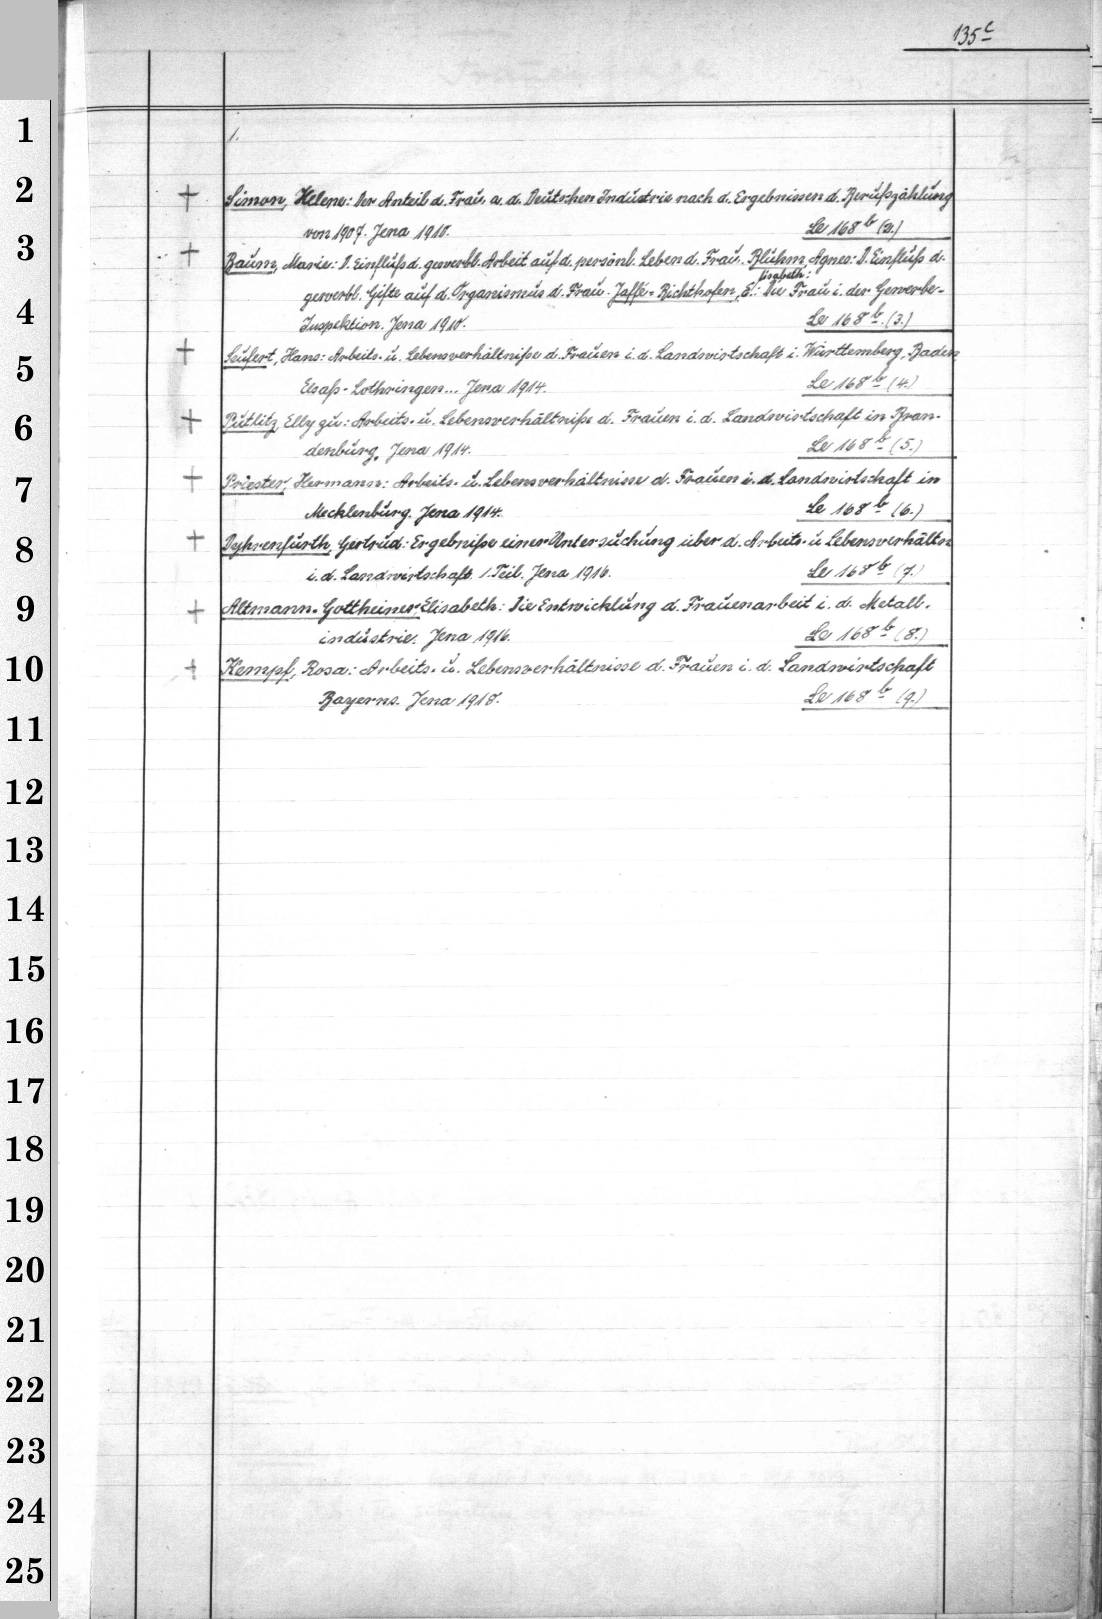 135c
1.
1
2
3
4
5
6
7
8
9
10
11
12
13
14
15
16
17
18
19
20
21
22
23
24
25
+ Simon, Helene: Der Anteil d. Frau a. d. Deutschen Industrie nach d. Ergebnissen d. Berufszählung
von 1907. Jena 1910. Le 168 b (2.)
+ Baum, Marie: D. Einfluß d. gewerbl. Arbeit auf d. persönl. Leben d. Frau. Bluhm, Agnes: D. Einfluß d.
lisabeth:
gewerbl. Gifte auf d. Organismus d. Frau. Jaffé-Richthofen, E.: Die Frau i. der Gewerbe-
Inspektion. Jena 1910. Le 168 b (3.)
+ Seufert, Hans: Arbeits- u. Lebensverhältniße d. Frauen i. d. Landwirtschaft i. Württemberg, Baden
Elsaß-Lothringen... Jena 1914. Le 168 b (4.)
+ Putlitz, Elly zu: Arbeits- u. Lebensverhältniße d. Frauen i. d. Landwirtschaft in Bran-
denburg. Jena 1914. Le 168 b (5.)
+ Priester, Hermann: Arbeits- u. Lebensverhältnisse d. Frauen i. d. Landwirtschaft in
Mecklenburg. Jena 1914. Le 168 b (6.)
+ Dyhrenfurth, Gertrud: Ergebniße einer Untersuchung über d. Arbeits- u Lebensverhältn
i. d. Landwirtschaft. 1. Teil. Jena 1916. Le 168 b (7.)
+ Altmann-Gottheiner, Elisabeth: Die Entwicklung d. Frauenarbeit i. d. Metall-
industrie. Jena 1916. Le 168 b (8.)
+ Kempf, Rosa: Arbeits- u. Lebensverhältnisse d. Frauen i. d. Landwirtschaft
Bayerns. Jena 1918. Le 168 b (9.)